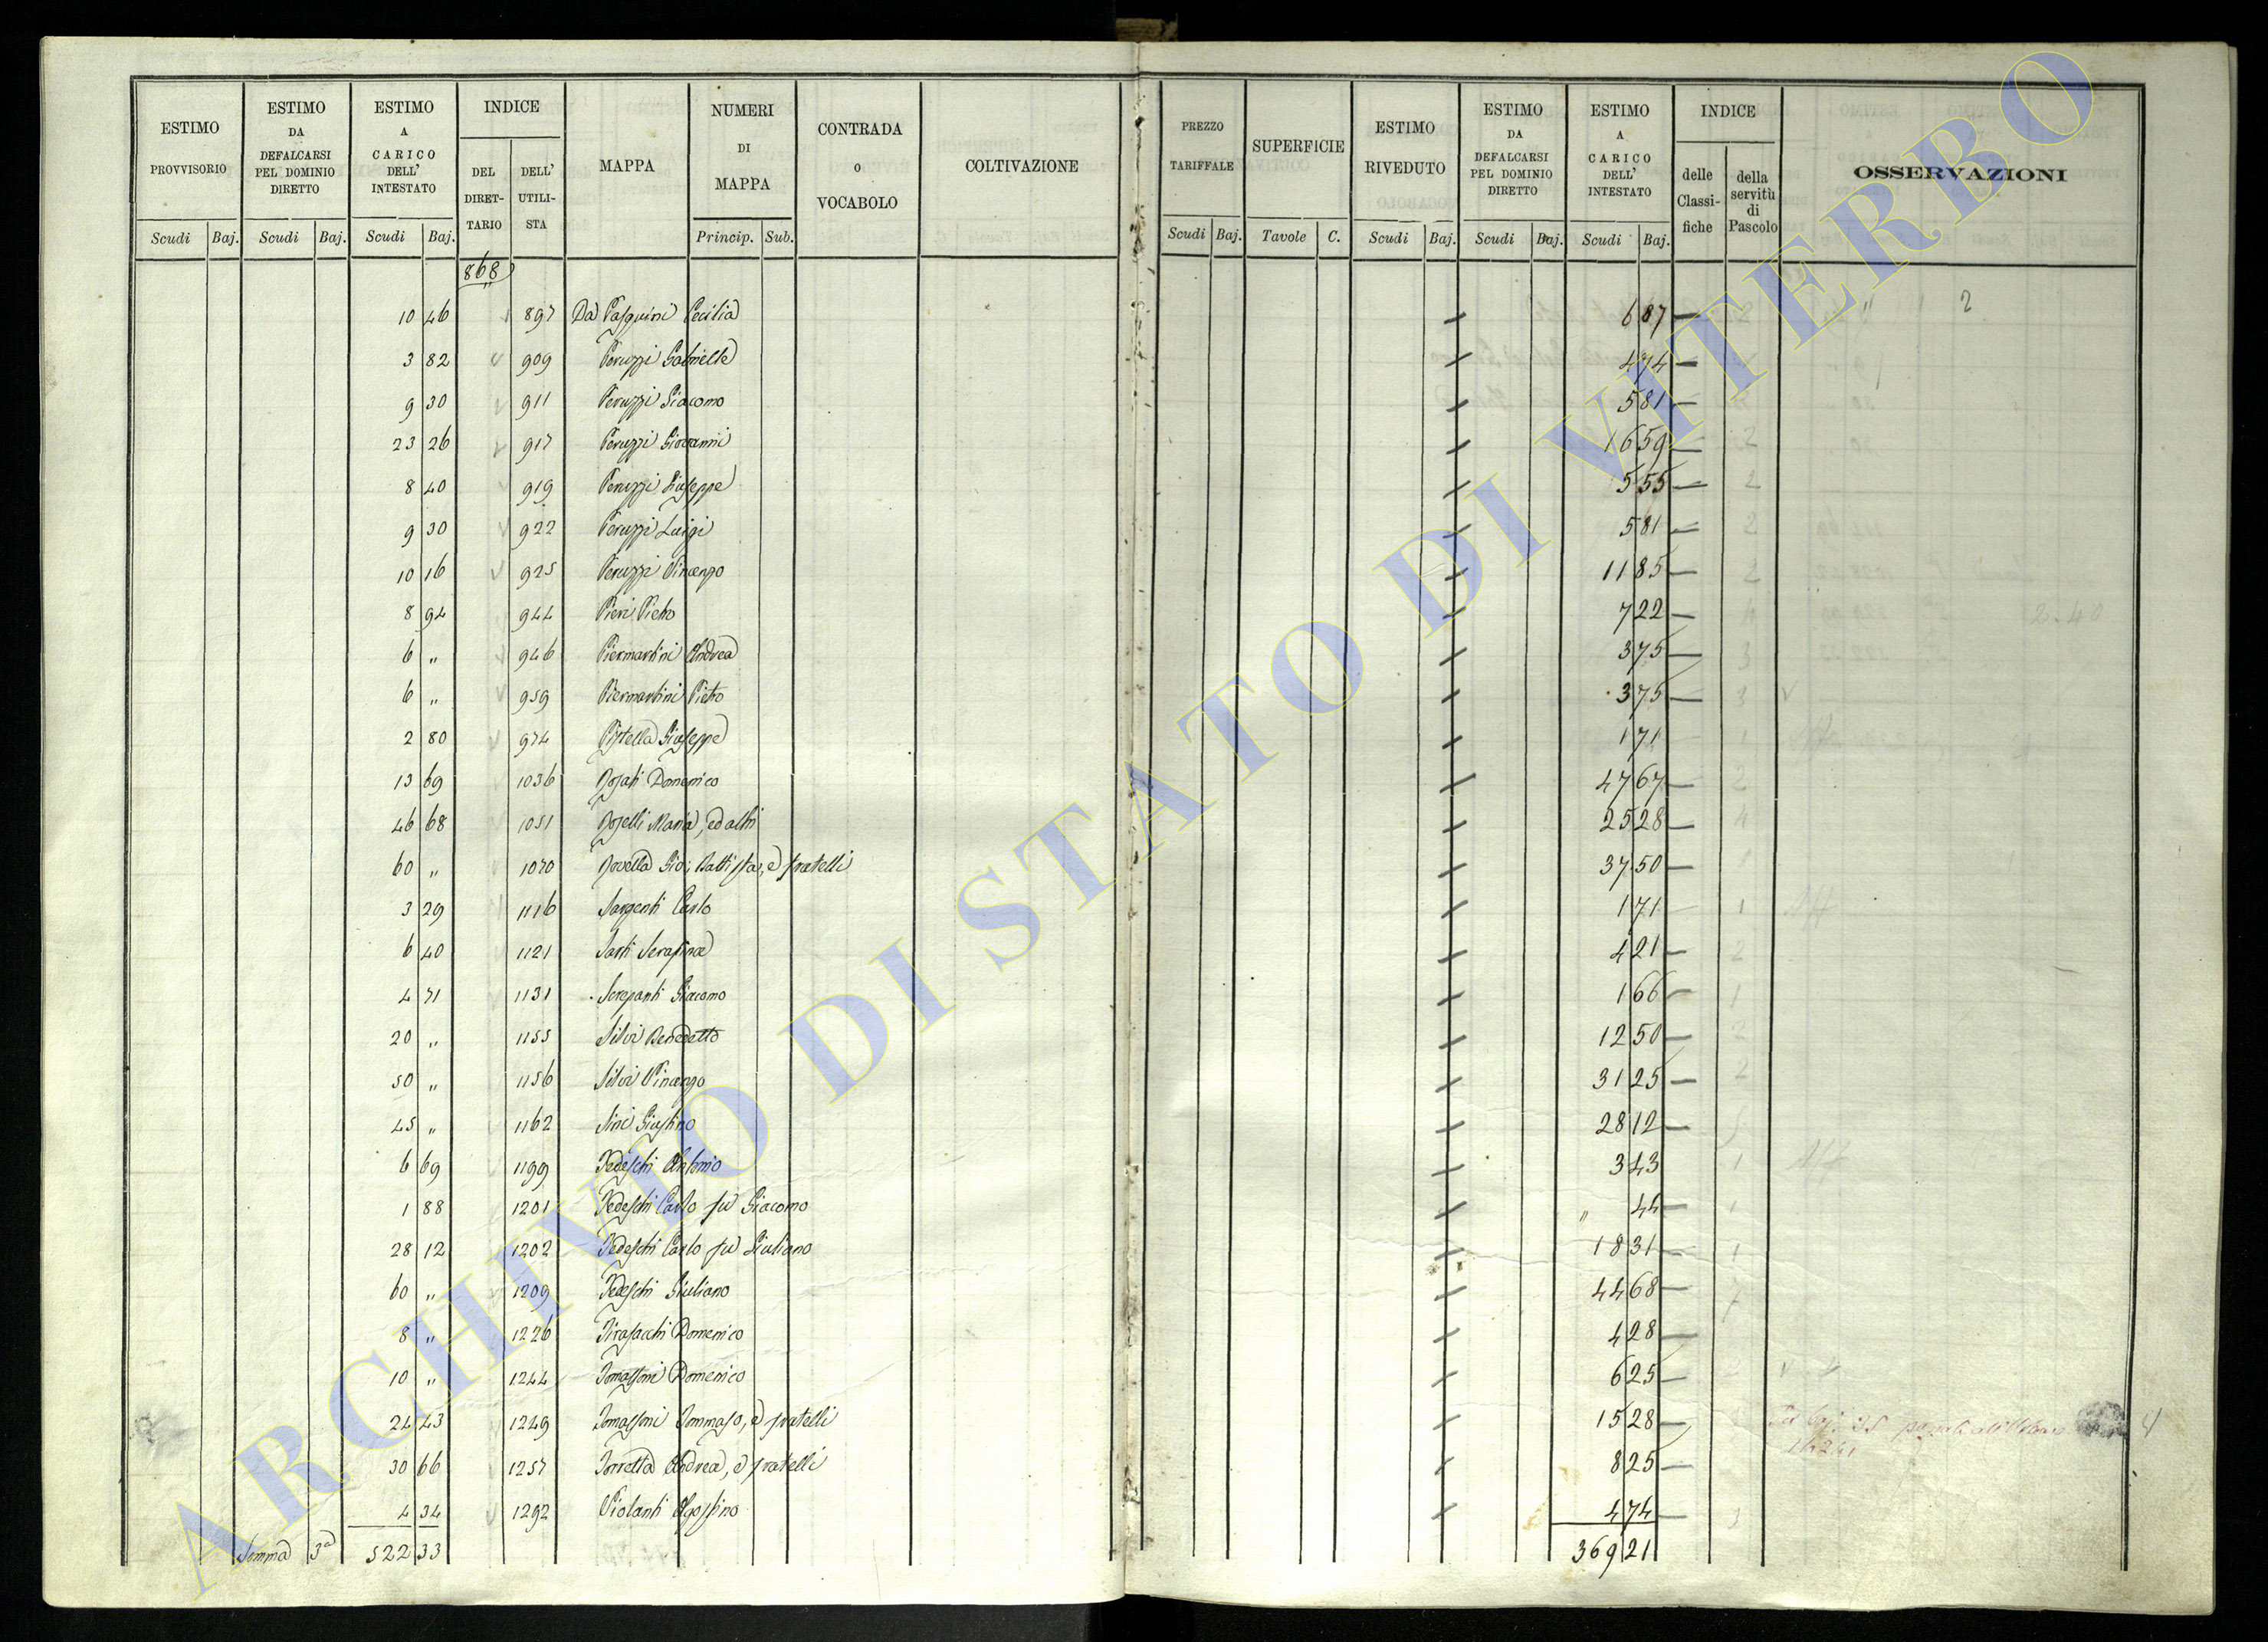 ESTIMO PROVVISORIO | ESTIMO DA DEFALCARSI PEL DOMINIO DIRETTO | ESTIMO A CARICO DELL' INTESTATO | INDICE | MAPPA | NUMERI DI MAPPA | CONTRADA o VOCABOLO | COLTIVAZIONE | PREZZO TARIFFALE | SUPERFICIE | ESTIMO RIVEDUTO | ESTIMO DA DEFALCARSI PEL DOMINIO DIRETTO | ESTIMO A CARICO DELL' INTESTATO | INDICE | OSSERVAZIONI
DEL DIRET-TARIO | DELL' UTILI-STA | delle Classi-fiche | della servitù di Pascolo
Scudi | Baj. | Scudi | Baj. | Scudi | Baj. | Princip. | Sub. | Scudi | Baj. | Tavole | C. | Scudi | Baj. | Scudi | Baj. | Scudi | Baj.
868
10 46 897 Da Pasquini Cecilia 6 87 2
3 82 909 Peruzzi Gabrielle 4 74
9 30 911 Peruzzi Giacomo 5 81
23 26 917 Peruzzi Giovanni 16 59 2
8 40 919 Peruzzi Giuseppe 5 55 2
9 30 922 Peruzzi Luigi 5 81 2
10 16 925 Peruzzi Vincenzo 11 85 2
8 94 944 Pieri Pietro 7 22 4 2.40
6 „ 946 Piermartini Andrea 3 75 3
6 „ 959 Piermartini Pietro 3 75 3
2 80 974 Pistella Giuseppe 1 71 1
13 69 1036 Rosati Domenico 47 67 2
46 68 1051 Roselli Maria, ed altri 25 28 4
60 „ 1070 Rovella Gio: Battista, e fratelli 37 50 1
3 29 1116 Sargenti Carlo 1 71 1
6 40 1121 Sarti Serafina 4 21 2
4 71 1131 Serepanti Giacomo 1 66 1
20 „ 1155 Silvi Benedetto 12 50 2
50 „ 1156 Silvi Vincenzo 31 25 2
45 „ 1162 Sini Giustino 28 12
6 69 1199 Tedeschi Antonio 3 43 1
1 88 1201 Tedeschi Carlo fu Giacomo „ 44 1
28 12 1202 Tedeschi Carlo fu Giuliano 18 31 1
60 „ 1209 Tedeschi Giuliano 44 68 7
8 „ 1226 Tirasacchi Domenico 4 28
10 „ 1244 Tomassoni Domenico 6 25 2
24 43 1249 Tomassoni Tommaso, e fratelli 15 28 4
30 66 1257 Torretta Andrea, e fratelli 8 25
4 34 1292 Violanti Agostino 4 74 3
Somma 3a 522 33 369 21
ARCHIVIO DI STATO DI VITERBO